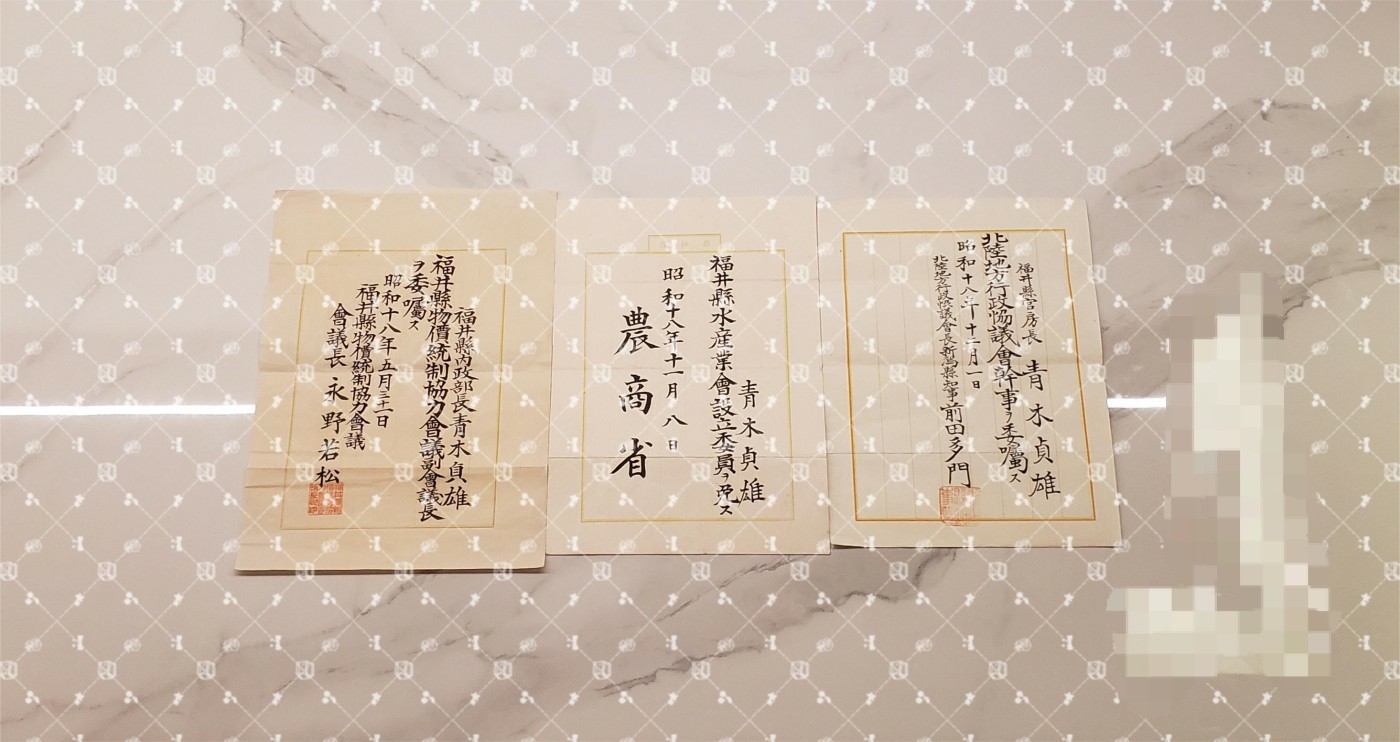 福井縣官房長 青木貞雄
北陸地方行政協議會幹事ヲ委嘱ス
昭和十八年十二月一日
北陸地方行政協議會長新潟縣知事 前田多門
青木貞雄
福井縣水産業會設立委員ヲ免ス
昭和十八年十一月八日
農商省
福井縣内政部長青木貞雄
福井縣物價統制協力會議副會議長
ヲ委嘱ス
昭和十八年五月三十一日
福井縣物價統制協力會議
會議長 永野若松